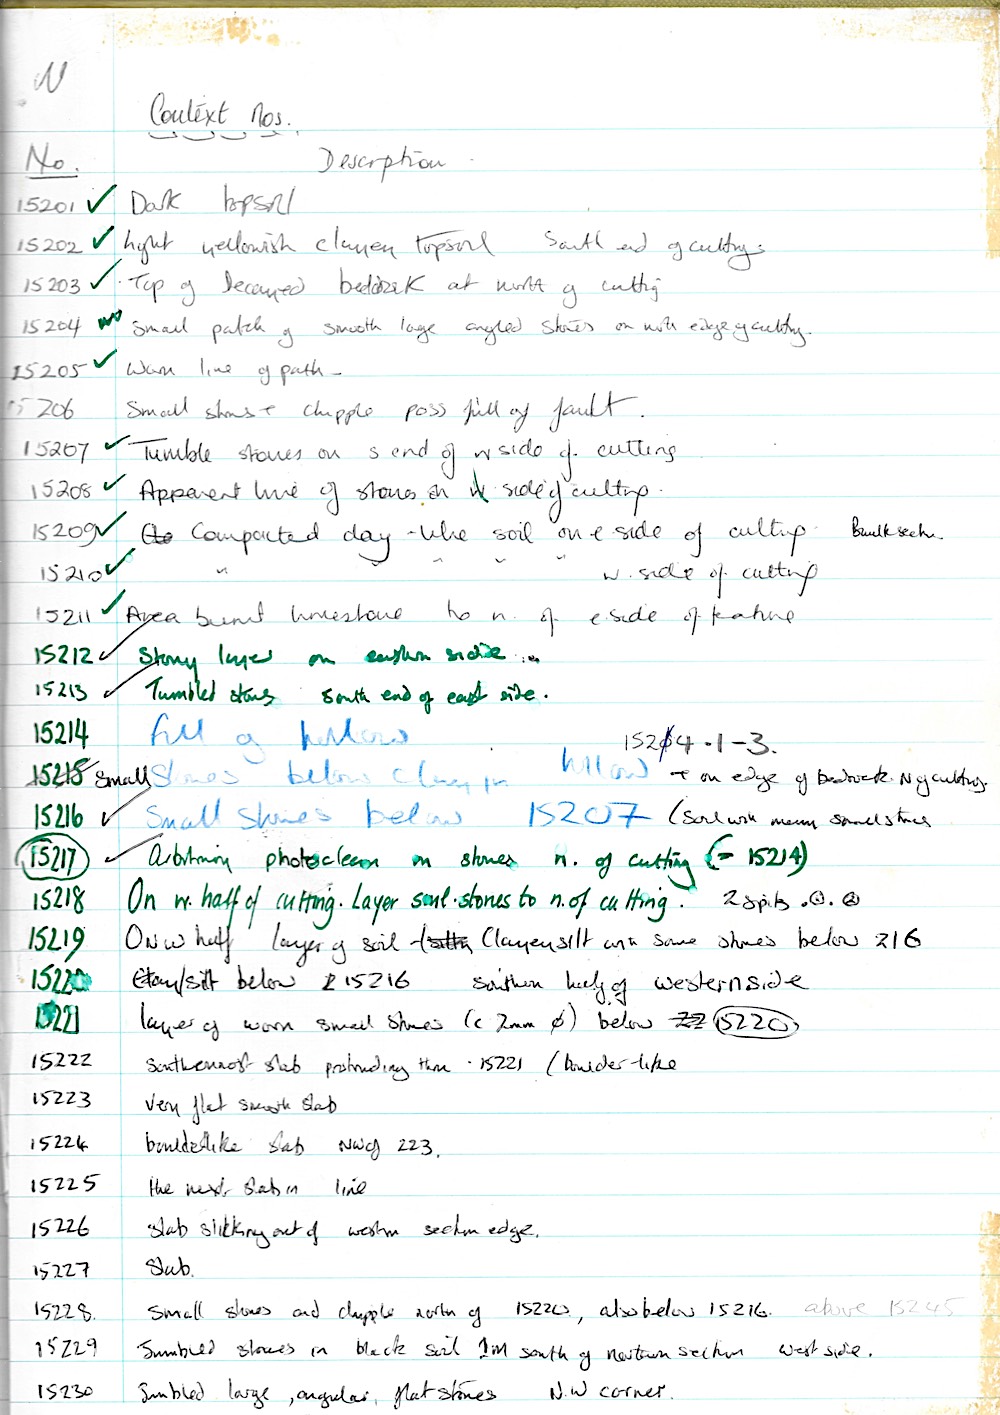 N
Context Nos.
No. Description
15201 ✓ Dark topsoil
15202 ✓ light yellowish clayey topsoil South end of cutting
15203 ✓ Top of Decayed bedrock at north of cutting
15204 Small patch of smooth large angled stones on north edge of cutting.
15205 ✓ Worn line of path -
15206 Small stones + chipple poss fill of fault.
15207 ✓ Tumble stones on s end of w side of cutting
15208 ✓ Apparent line of stones on W side of cutting.
15209 ✓ Compacted clay-like soil on e side of cutting Baulk section
15210 ✓ " " " " w. side of cutting
15211 ✓ Area burnt limestone to n. of e side of feature
15212 ✓ Stony layer on eastern side
15213 ✓ Tumbled stones South end of east side.
15214 fill of hollow
15214.1-3.
15215 Small Stones below clay in hollow + on edge of bedrock N of cutting.
15216 ✓ Small stones below 15207 (Soil with many small stones
15217 ✓ Arbitrary photoclean on stones n. of cutting (= 15214)
15218 On w. half of cutting. Layer soil.stones to n. of cutting. 2 spits
15219 On w half layer of soil Clayey silt with some stones below 216
15220 Clay/silt below 15216 southern half of western side
15221 layer of worn small stones (c 2mm ϕ) below 15220
15222 Southernmost slab protruding thru 15221 (boulder-like
15223 Very flat smooth slab
15224 boulderlike slab NW of 223.
15225 the next slab in line
15226 slab sticking out of western section edge.
15227 Slab.
15228. Small stones and chipple north of 15220, also below 15216. above 15245
15229 Jumbled stones in black soil 1m south of northern section west side.
15230 Jumbled large, angular, flat stones N.W corner.